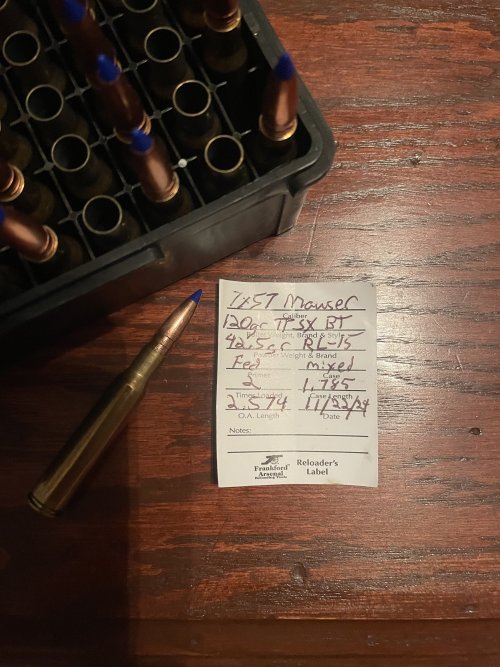 7x57 Mauser
Caliber
120gr TTSX BT
Weight, Brand & Style
42.5gr RL-15
Powder Weight & Brand
Fed mixed
Primer Case
2 1.785
Times Loaded Case Length
2.574 11/22/24
O.A. Length Date
Notes:
Frankford Arsenal
Reloading Tools
Reloader's Label